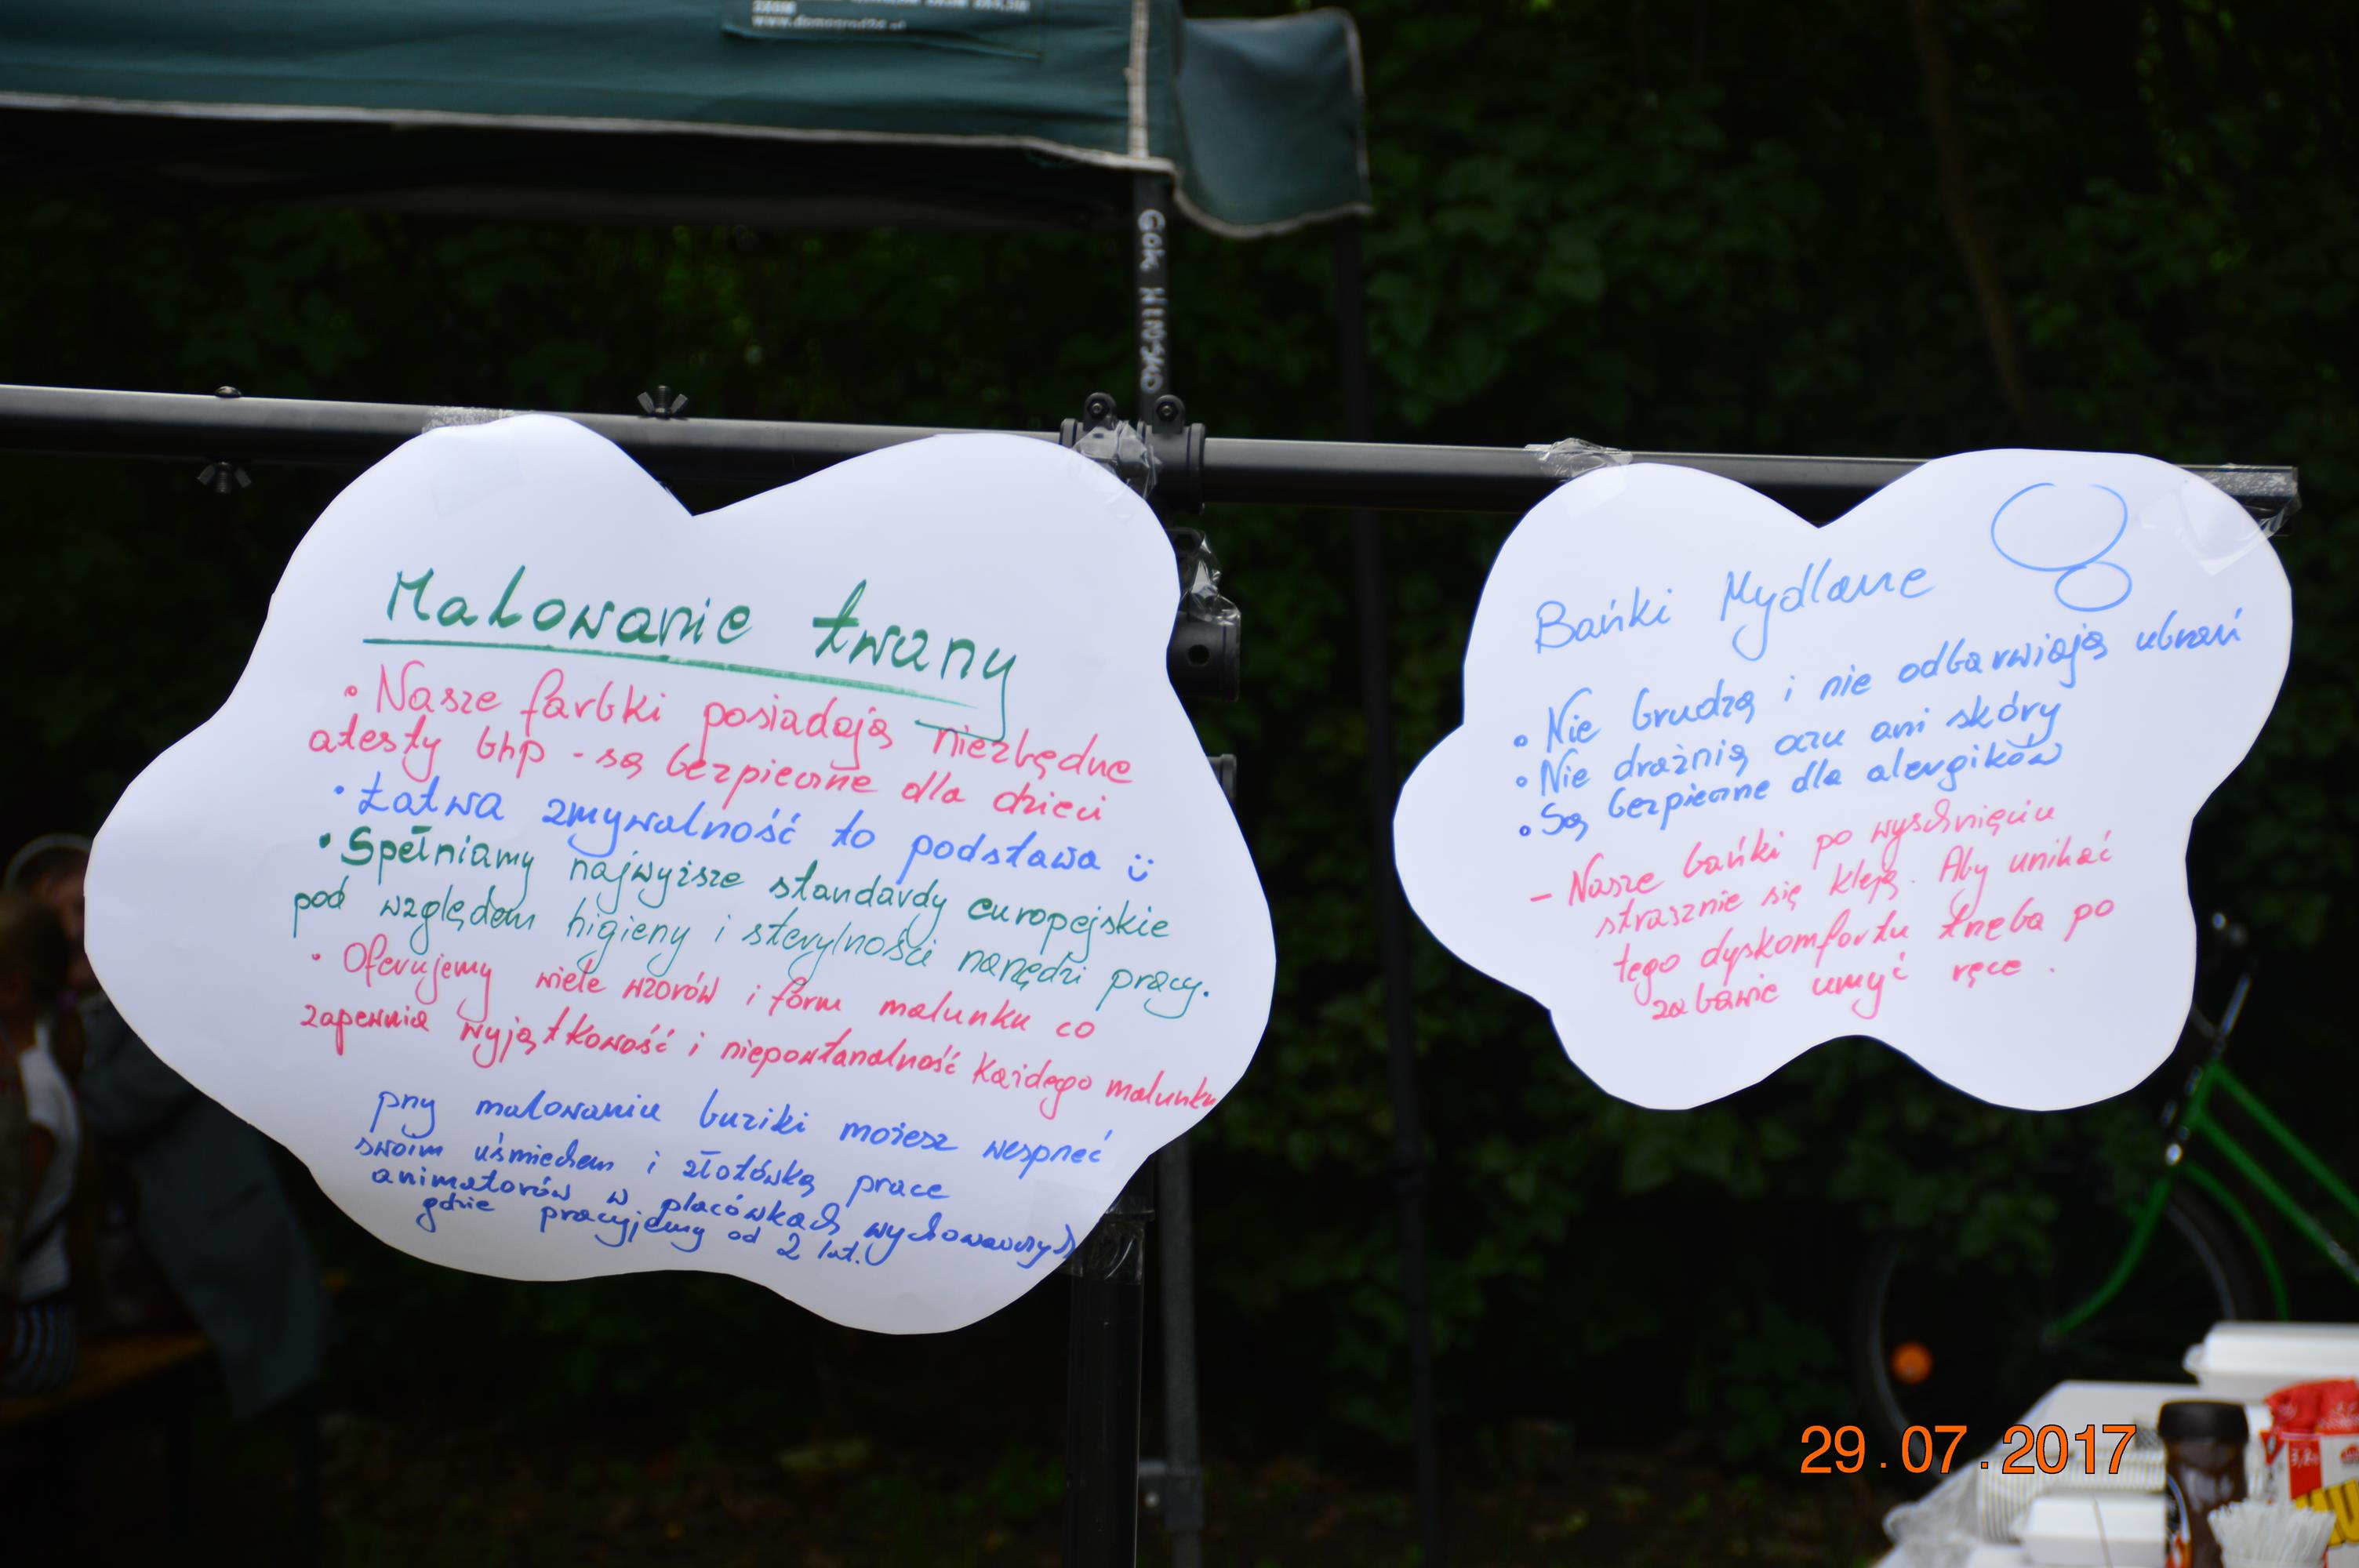 www.domogrod24.pl
GOK
Malowanie twarzy
• Nasze farbki posiadają niezbędne
atesty bhp - są bezpieczne dla dzieci
• Łatwa zmywalność to podstawa ü
• Spełniamy najwyższe standardy europejskie
pod względem higieny i sterylności narzędzi pracy.
• Oferujemy wiele wzorów i form malunku co
zapewnia wyjątkowość i niepowtarzalność każdego malunku
przy malowaniu buziki możesz wesprzeć
swoim uśmiechem i złotówką prace
animatorów w placówkach wychowawczych
gdzie pracujemy od 2 lat.
Bańki Mydlane
• Nie brudzą i nie odbarwiają ubrań
• Nie drażnią oczu ani skóry
• Są bezpieczne dla alergików
- Nasze bańki po wyschnięciu
strasznie się kleją. Aby unikać
tego dyskomfortu trzeba po
zabawie umyć ręce.
29.07.2017